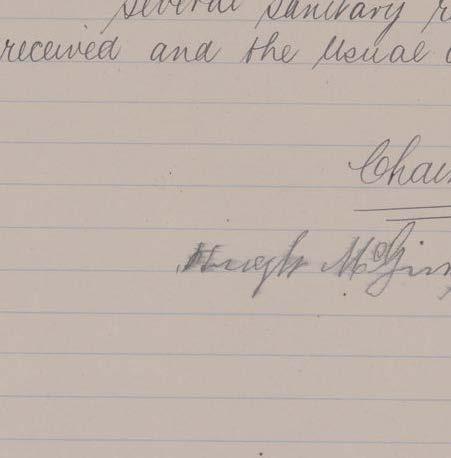 several sanitary
received and the usual
Chair
Hugh McGin